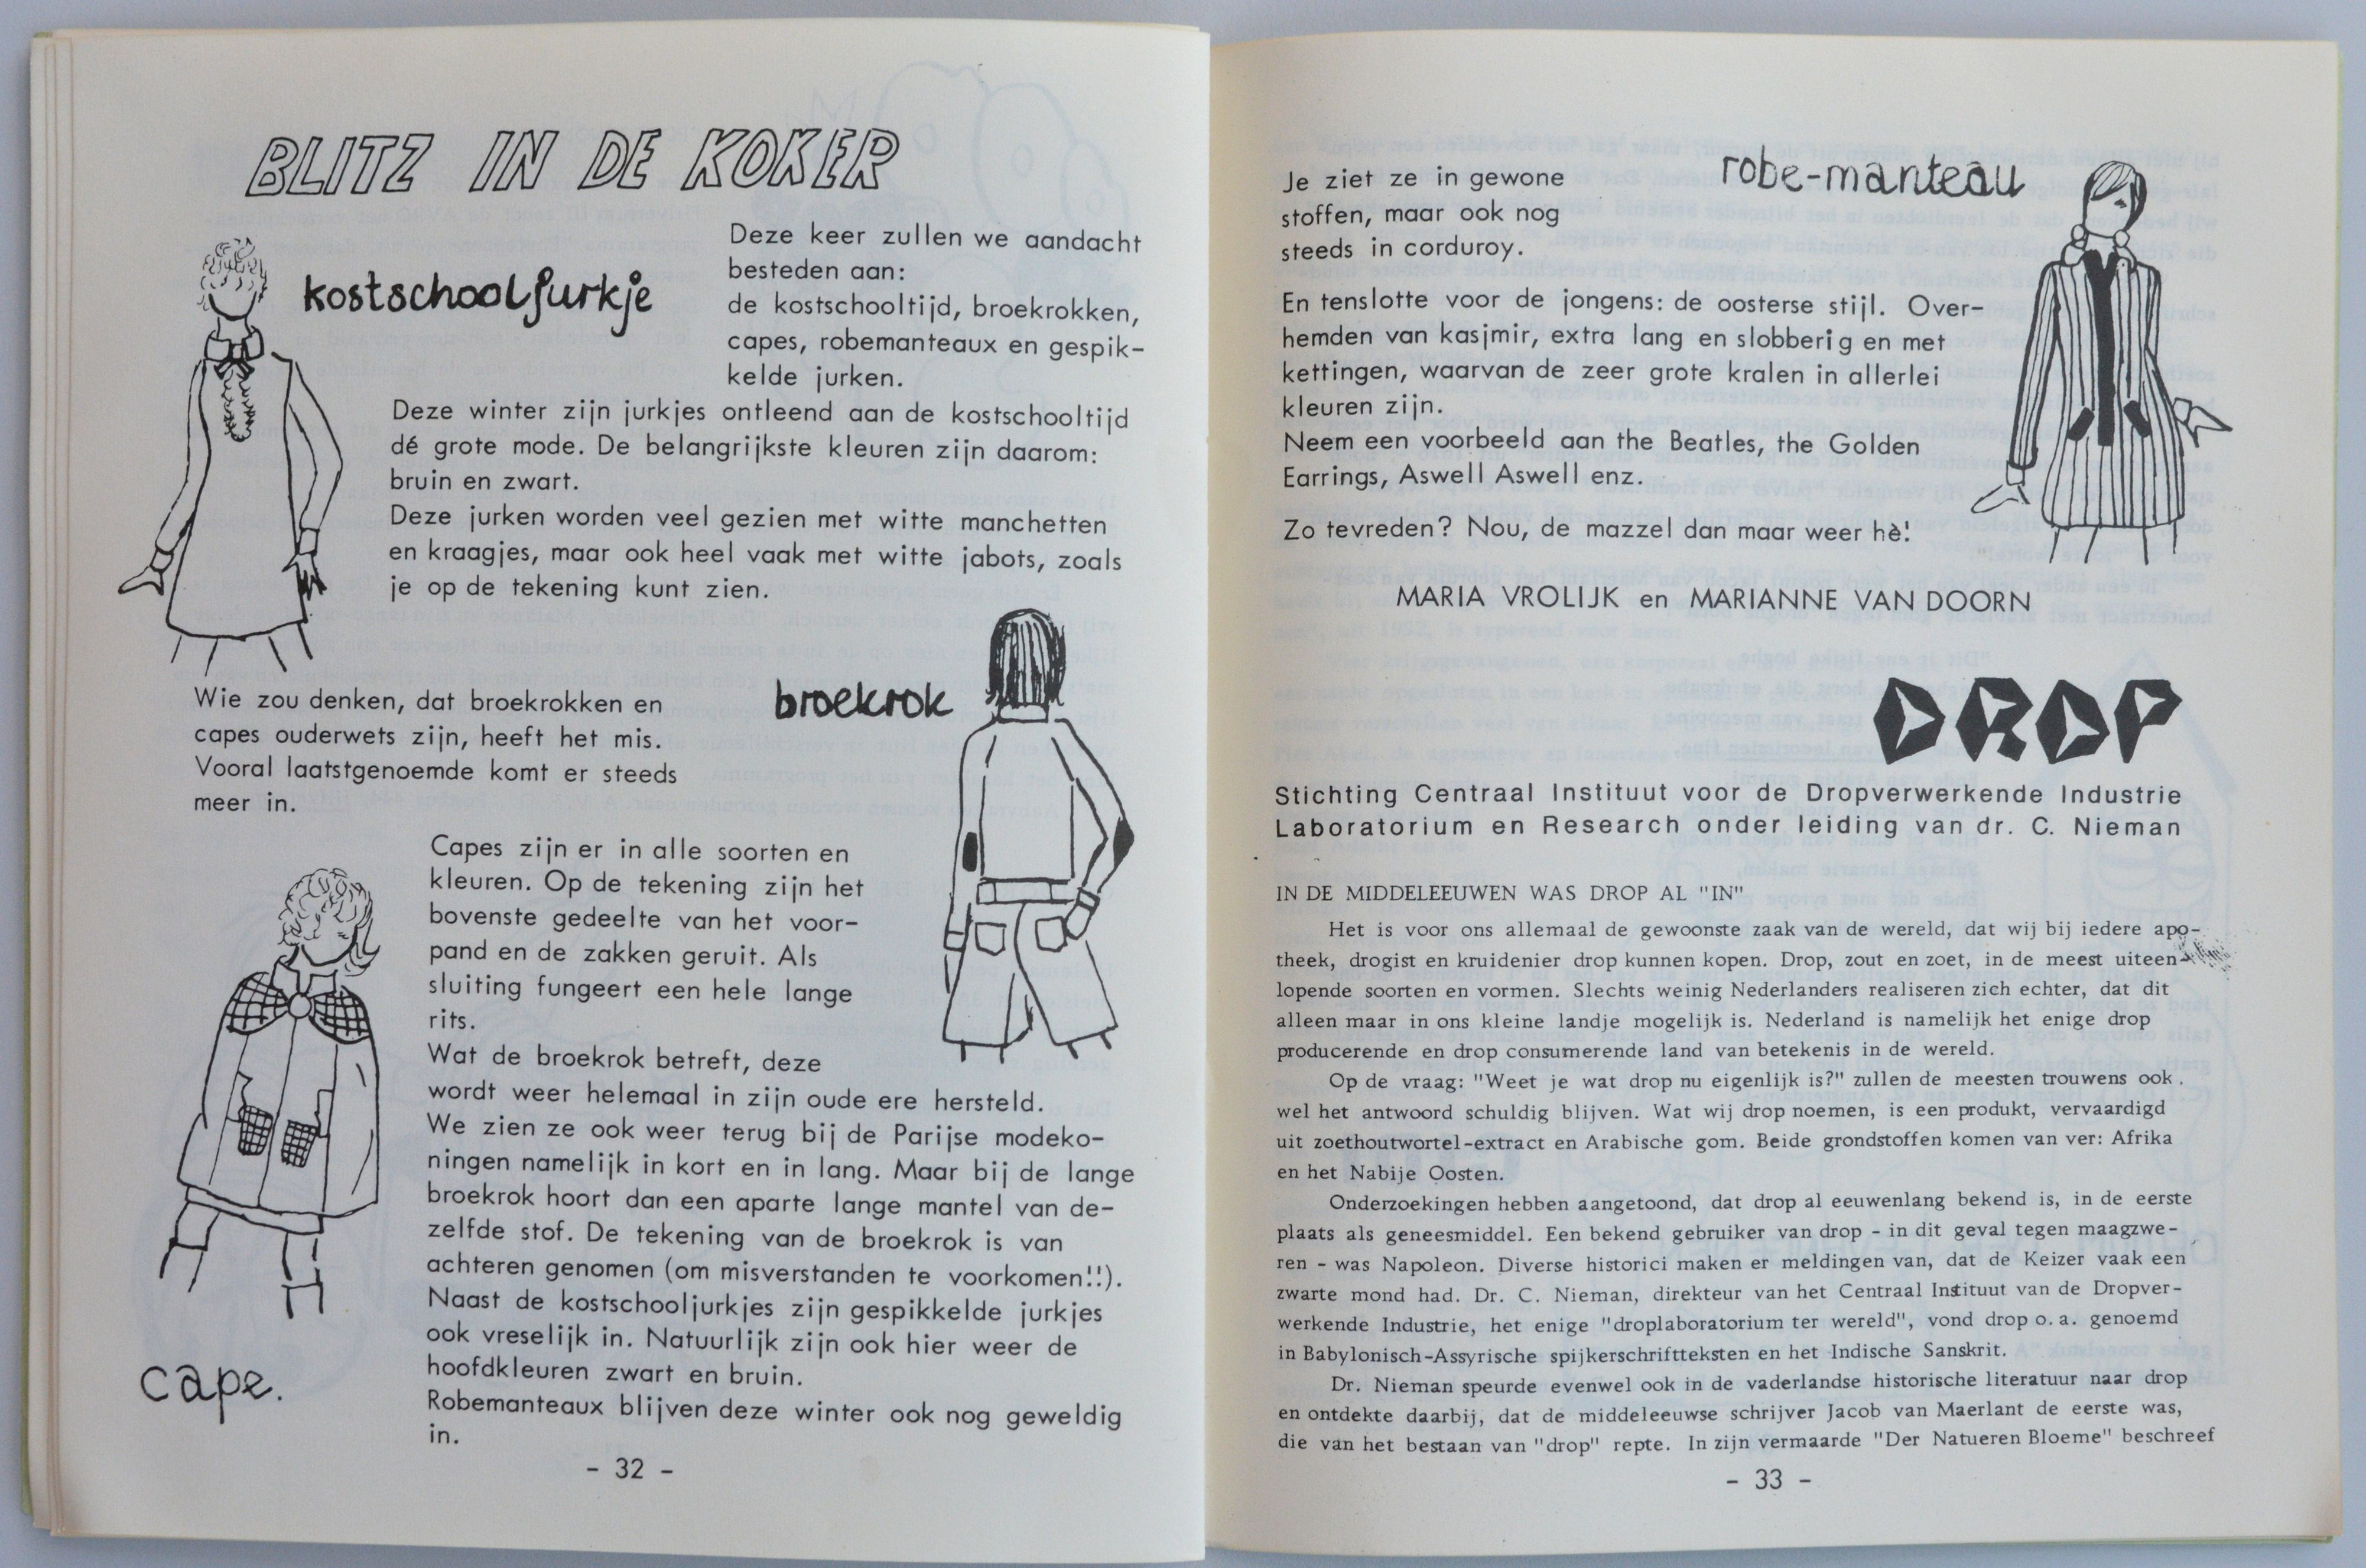 BLITZ IN DE KOKER
kostschooljurkje
Deze keer zullen we aandacht
besteden aan:
de kostschooltijd, broekrokken,
capes, robemanteaux en gespik-
kelde jurken.
Deze winter zijn jurkjes ontleend aan de kostschooltijd
dé grote mode. De belangrijkste kleuren zijn daarom:
bruin en zwart.
Deze jurken worden veel gezien met witte manchetten
en kraagjes, maar ook heel vaak met witte jabots, zoals
je op de tekening kunt zien.
Wie zou denken, dat broekrokken en
capes ouderwets zijn, heeft het mis.
Vooral laatstgenoemde komt er steeds
meer in.
broekrok
Capes zijn er in alle soorten en
kleuren. Op de tekening zijn het
bovenste gedeelte van het voor-
pand en de zakken geruit. Als
sluiting fungeert een hele lange
rits.
Wat de broekrok betreft, deze
wordt weer helemaal in zijn oude ere hersteld.
We zien ze ook weer terug bij de Parijse modeko-
ningen namelijk in kort en in lang. Maar bij de lange
broekrok hoort dan een aparte lange mantel van de-
zelfde stof. De tekening van de broekrok is van
achteren genomen (om misverstanden te voorkomen!!).
Naast de kostschooljurkjes zijn gespikkelde jurkjes
ook vreselijk in. Natuurlijk zijn ook hier weer de
hoofdkleuren zwart en bruin.
Robemanteaux blijven deze winter ook nog geweldig
in.
cape.
- 32 -
robe-manteau
Je ziet ze in gewone
stoffen, maar ook nog
steeds in corduroy.
En tenslotte voor de jongens: de oosterse stijl. Over-
hemden van kasjmir, extra lang en slobberig en met
kettingen, waarvan de zeer grote kralen in allerlei
kleuren zijn.
Neem een voorbeeld aan the Beatles, the Golden
Earrings, Aswell Aswell enz.
Zo tevreden? Nou, de mazzel dan maar weer hè!
MARIA VROLIJK en MARIANNE VAN DOORN
DROP
Stichting Centraal Instituut voor de Dropverwerkende Industrie
Laboratorium en Research onder leiding van dr. C. Nieman
IN DE MIDDELEEUWEN WAS DROP AL "IN"
Het is voor ons allemaal de gewoonste zaak van de wereld, dat wij bij iedere apo-
theek, drogist en kruidenier drop kunnen kopen. Drop, zout en zoet, in de meest uiteen-
lopende soorten en vormen. Slechts weinig Nederlanders realiseren zich echter, dat dit
alleen maar in ons kleine landje mogelijk is. Nederland is namelijk het enige drop
producerende en drop consumerende land van betekenis in de wereld.
Op de vraag: "Weet je wat drop nu eigenlijk is?" zullen de meesten trouwens ook.
wel het antwoord schuldig blijven. Wat wij drop noemen, is een produkt, vervaardigd
uit zoethoutwortel-extract en Arabische gom. Beide grondstoffen komen van ver: Afrika
en het Nabije Oosten.
Onderzoekingen hebben aangetoond, dat drop al eeuwenlang bekend is, in de eerste
plaats als geneesmiddel. Een bekend gebruiker van drop - in dit geval tegen maagzwe-
ren - was Napoleon. Diverse historici maken er meldingen van, dat de Keizer vaak een
zwarte mond had. Dr. C. Nieman, direkteur van het Centraal Instituut van de Dropver-
werkende Industrie, het enige "droplaboratorium ter wereld", vond drop o.a. genoemd
in Babylonisch-Assyrische spijkerschriftteksten en het Indische Sanskrit.
Dr. Nieman speurde evenwel ook in de vaderlandse historische literatuur naar drop
en ontdekte daarbij, dat de middeleeuwse schrijver Jacob van Maerlant de eerste was,
die van het bestaan van "drop" repte. In zijn vermaarde "Der Natueren Bloeme" beschreef
- 33 -